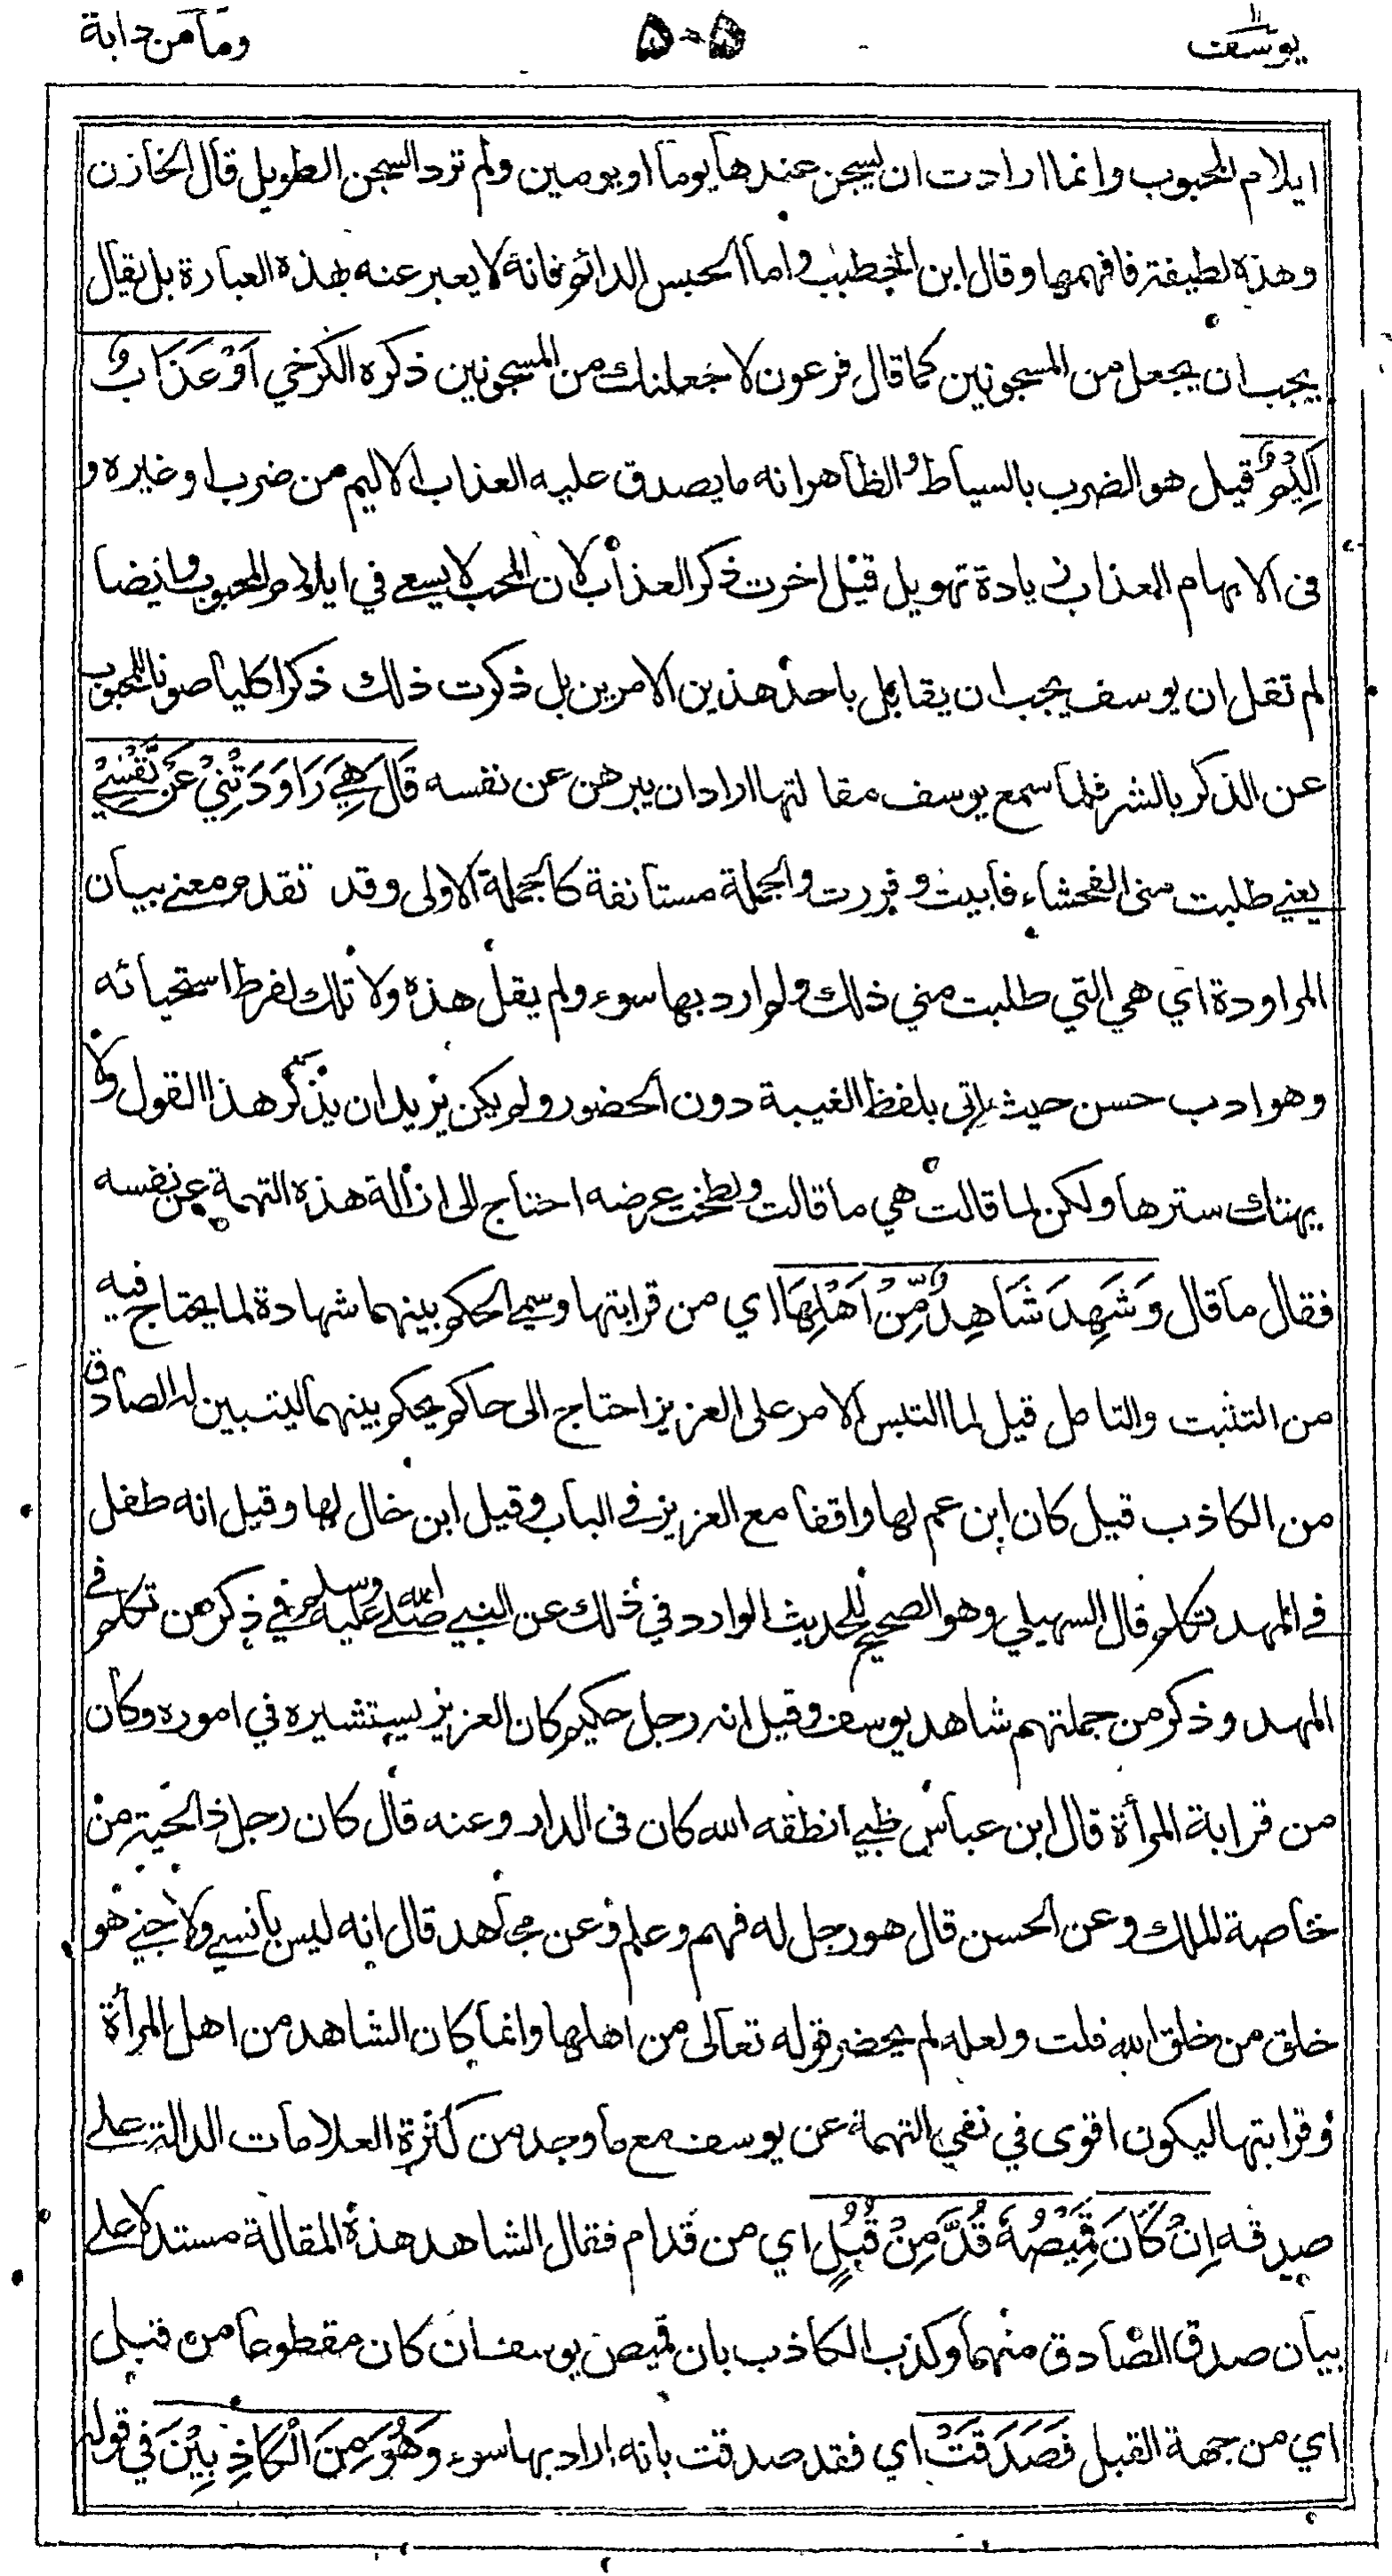 يوسف
٥٠٥
وما من دابة
ايلام المحبوب وانما ارادت ان يسجن عندها يوما او يومين ولم ترد السجن الطويل قال الخازن
وهذه لطيفة فافهمها وقال ابن الخطيب واما الحبس الدائم فانه لا يعبر عنه بهذه العبارة بل يقال
يجب ان يجعل من المسجونين كما قال فرعون لاجعلنك من المسجونين ذكره الكرخي اَوْ عَذَابٌ
اَلِيْمٌ قيل هو الضرب بالسياط والظاهر انه ما يصدق عليه العذاب الاليم من ضرب او غيره و
فى الابهام للعذاب زيادة تهويل قيل اخرت ذكر العذاب لان المحب لا يسعى في ايلام المحبوب وايضا
لم تقل ان يوسف يجب ان يقابل باحد هذين الامرين بل ذكرت ذلك ذكرا كليا صونا للمحبوب
عن الذكر بالشر فلما سمع يوسف مقالتها اراد ان يبرهن عن نفسه قَالَ هِيَ رَاوَدَتْنِيْ عَنْ نَّفْسِيْ
يعني طلبت منى الفحشاء فابيت وفررت والجملة مستانفة كالجملة الاولى وقد تقدم معنى بيان
المراودة اي هي التي طلبت مني ذلك ولم ارد بها سوء ولم يقل هذه ولا تلك لفرط استحيائه
وهو ادب حسن حيث اتى بلفظ الغيبة دون الحضور ولم يكن يريد ان يذكر هذا القول ولا
يهتك سترها ولكن لما قالت هي ما قالت ولطخت عرضه احتاج الى ازالة هذه التهمة عن نفسه
فقال ما قال وَشَهِدَ شَاهِدٌ مِّنْ اَهْلِهَا اي من قرابتها وسمي الحكم بينهما شهادة لما يحتاج فيه
من التثبت والتامل قيل لما التبس الامر على العزيز احتاج الى حاكم يحكم بينهما ليتبين له الصادق
من الكاذب قيل كان ابن عم لها واقفا مع العزيز في الباب وقيل ابن خال لها وقيل انه طفل
في المهد تكلم قال السهيلي وهو الصحيح للحديث الوارد في ذلك عن النبي صلى الله عليه وسلم في ذكر من تكلم في
المهد وذكر من جملتهم شاهد يوسف وقيل انه رجل حكيم كان العزيز يستشيره في اموره وكان
من قرابة المرأة قال ابن عباس ظبي انطقه الله كان فى الدار وعنه قال كان رجل ذالحية من
خاصة الملك وعن الحسن قال هو رجل له فهم وعلم وعن مجاهد قال انه ليس بانسي ولا جني هو
خلق من خلق الله قلت ولعله لم يحضر قوله تعالى من اهلها وانما كان الشاهد من اهل المرأة
وقرابتها ليكون اقوى في نفي التهمة عن يوسف مع ما وجد من كثرة العلامات الدالة على
صدقه اِنْ كَانَ قَمِيْصُهٗ قُدَّ مِنْ قُبُلٍ اي من قدام فقال الشاهد هذه المقالة مستدلا على
بيان صدق الصادق منهما وكذب الكاذب بان قميص يوسف ان كان مقطوعا من قبل
اي من جهة القبل فَصَدَقَتْ اي فقد صدقت بانه اراد بها سوء وَهُوَ مِنَ الْكَاذِبِيْنَ في قوله